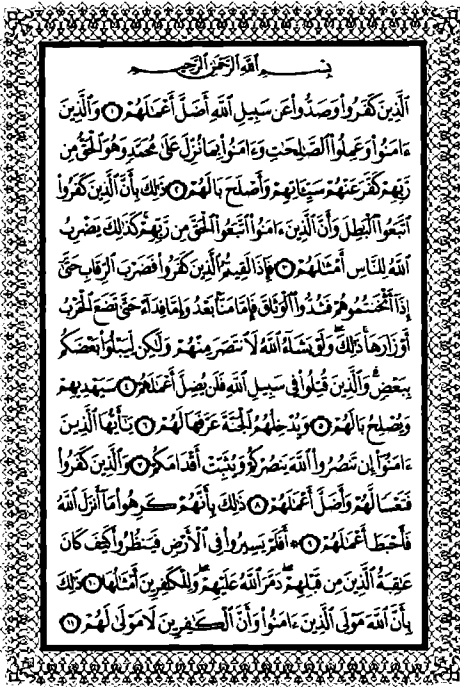 بِسْمِ اللَّهِ الرَّحْمَٰنِ الرَّحِيمِ
ٱلَّذِينَ كَفَرُوا۟ وَصَدُّوا۟ عَن سَبِيلِ ٱللَّهِ أَضَلَّ أَعْمَٰلَهُمْ ١ وَٱلَّذِينَ
ءَامَنُوا۟ وَعَمِلُوا۟ ٱلصَّٰلِحَٰتِ وَءَامَنُوا۟ بِمَا نُزِّلَ عَلَىٰ مُحَمَّدٍ وَهُوَ ٱلْحَقُّ مِن
رَّبِّهِمْ كَفَّرَ عَنْهُمْ سَيِّـَٔاتِهِمْ وَأَصْلَحَ بَالَهُمْ ٢ ذَٰلِكَ بِأَنَّ ٱلَّذِينَ كَفَرُوا۟
ٱتَّبَعُوا۟ ٱلْبَٰطِلَ وَأَنَّ ٱلَّذِينَ ءَامَنُوا۟ ٱتَّبَعُوا۟ ٱلْحَقَّ مِن رَّبِّهِمْ كَذَٰلِكَ يَضْرِبُ
ٱللَّهُ لِلنَّاسِ أَمْثَٰلَهُمْ ٣ فَإِذَا لَقِيتُمُ ٱلَّذِينَ كَفَرُوا۟ فَضَرْبَ ٱلرِّقَابِ حَتَّىٰٓ
إِذَآ أَثْخَنتُمُوهُمْ فَشُدُّوا۟ ٱلْوَثَاقَ فَإِمَّا مَنًّۢا بَعْدُ وَإِمَّا فِدَآءً حَتَّىٰ تَضَعَ ٱلْحَرْبُ
أَوْزَارَهَا ۚ ذَٰلِكَ ۖ وَلَوْ يَشَآءُ ٱللَّهُ لَٱنتَصَرَ مِنْهُمْ وَلَٰكِن لِّيَبْلُوَا۟ بَعْضَكُم
بِبَعْضٍ ۗ وَٱلَّذِينَ قُتِلُوا۟ فِى سَبِيلِ ٱللَّهِ فَلَن يُضِلَّ أَعْمَٰلَهُمْ ٤ سَيَهْدِيهِمْ
وَيُصْلِحُ بَالَهُمْ ٥ وَيُدْخِلُهُمُ ٱلْجَنَّةَ عَرَّفَهَا لَهُمْ ٦ يَٰٓأَيُّهَا ٱلَّذِينَ
ءَامَنُوٓا۟ إِن تَنصُرُوا۟ ٱللَّهَ يَنصُرْكُمْ وَيُثَبِّتْ أَقْدَامَكُمْ ٧ وَٱلَّذِينَ كَفَرُوا۟
فَتَعْسًا لَّهُمْ وَأَضَلَّ أَعْمَٰلَهُمْ ٨ ذَٰلِكَ بِأَنَّهُمْ كَرِهُوا۟ مَآ أَنزَلَ ٱللَّهُ
فَأَحْبَطَ أَعْمَٰلَهُمْ ٩ ۞ أَفَلَمْ يَسِيرُوا۟ فِى ٱلْأَرْضِ فَيَنظُرُوا۟ كَيْفَ كَانَ
عَٰقِبَةُ ٱلَّذِينَ مِن قَبْلِهِمْ ۚ دَمَّرَ ٱللَّهُ عَلَيْهِمْ ۖ وَلِلْكَٰفِرِينَ أَمْثَٰلُهَا ١٠ ذَٰلِكَ
بِأَنَّ ٱللَّهَ مَوْلَى ٱلَّذِينَ ءَامَنُوا۟ وَأَنَّ ٱلْكَٰفِرِينَ لَا مَوْلَىٰ لَهُمْ ١١